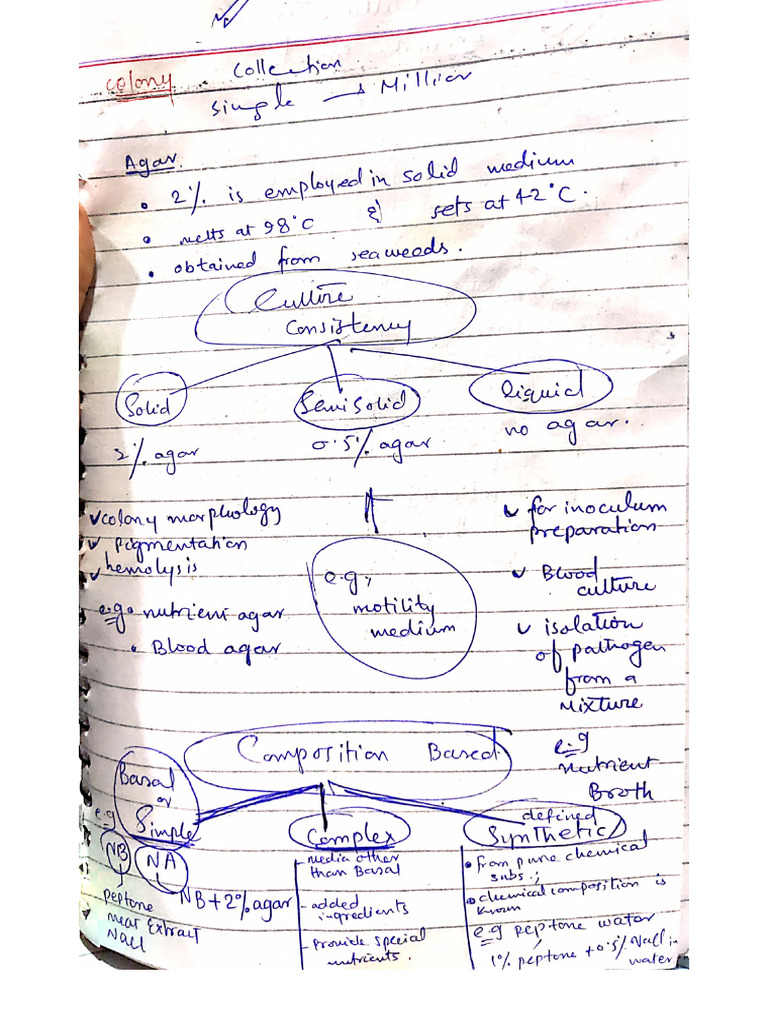 colony . Collection
single → Million
Agar.
• 2% is employed in solid medium
• melts at 98°C & sets at 42°C.
• obtained from seaweeds.
Culture
Consistency
Solid
Semisolid
Liquid
2% agar
0.5% agar
no agar.
✓ colony morphology
✓ Pigmentation
✓ hemolysis
e.g. nutrient agar
• Blood agar
e.g,
motility
medium
✓ for inoculum
preparation
✓ Blood
culture
✓ isolation
of pathogen
from a
Mixture
e.g
nutrient
Broth
Composition Based
Basal
or
Simple
e.g
NB
NA
peptone
meat Extract
Nacl
NB + 2% agar
Complex
- media other
than Basal
- added
ingredients
- Provide special
nutrients.
defined
Synthetic
• from pure chemical
subs.;
• chemical composition is
known
e.g peptone water
1% peptone + 0.5% Nacl in
water